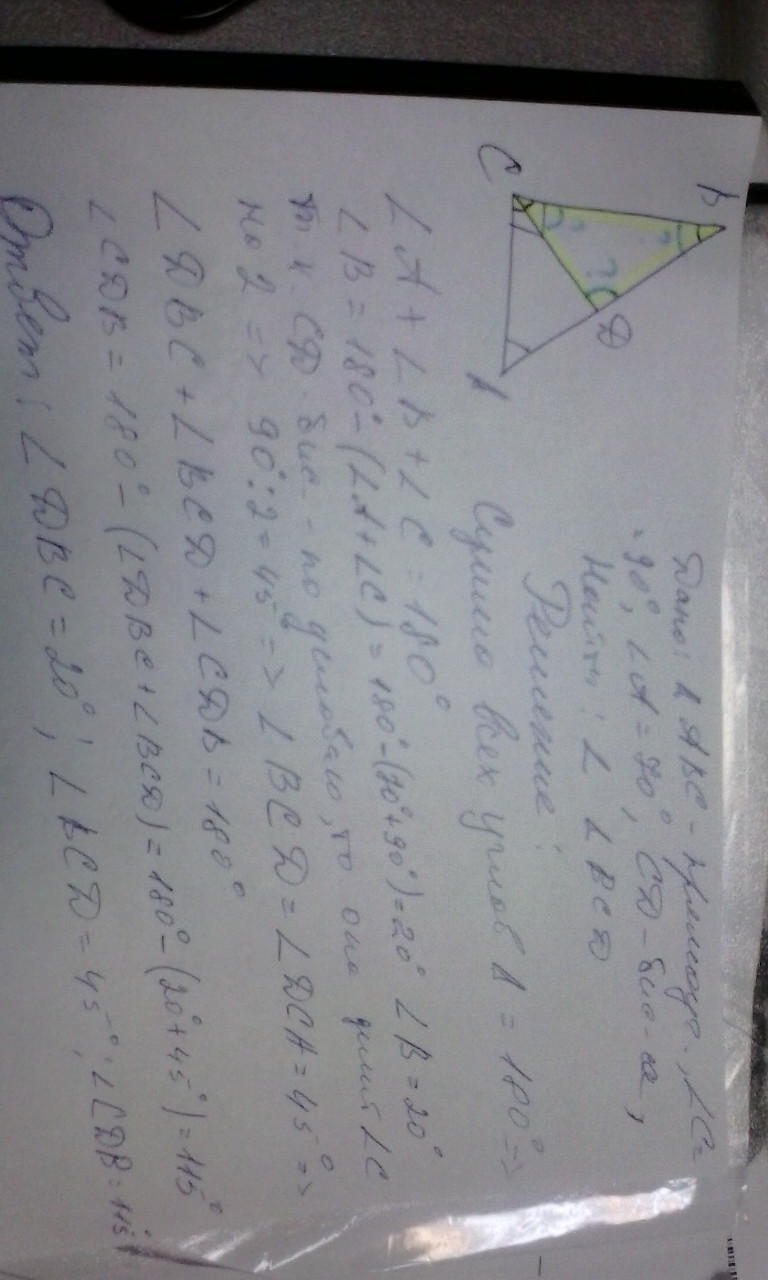 B
C
D
A
Дано: Δ ABC - прямоуг., ∠C=
= 90°, ∠A = 70°, CD - бис-са,
Найти: ∠ ∆ BCD
Решение:
Сумма всех углов Δ = 180° =>
∠A + ∠B + ∠C = 180°
∠B = 180° - (∠A + ∠C) = 180° - (70° + 90°) = 20° ∠B = 20°
т.к. CD - бис. - по условию, то она делит ∠C
на 2 => 90° : 2 = 45° => ∠BCD = ∠DCA = 45° =>
∠DBC + ∠BCD + ∠CDB = 180°
∠CDB = 180° - (∠DBC + ∠BCD) = 180° - (20° + 45°) = 115°
Ответ: ∠DBC = 20°; ∠BCD = 45°; ∠CDB = 115°